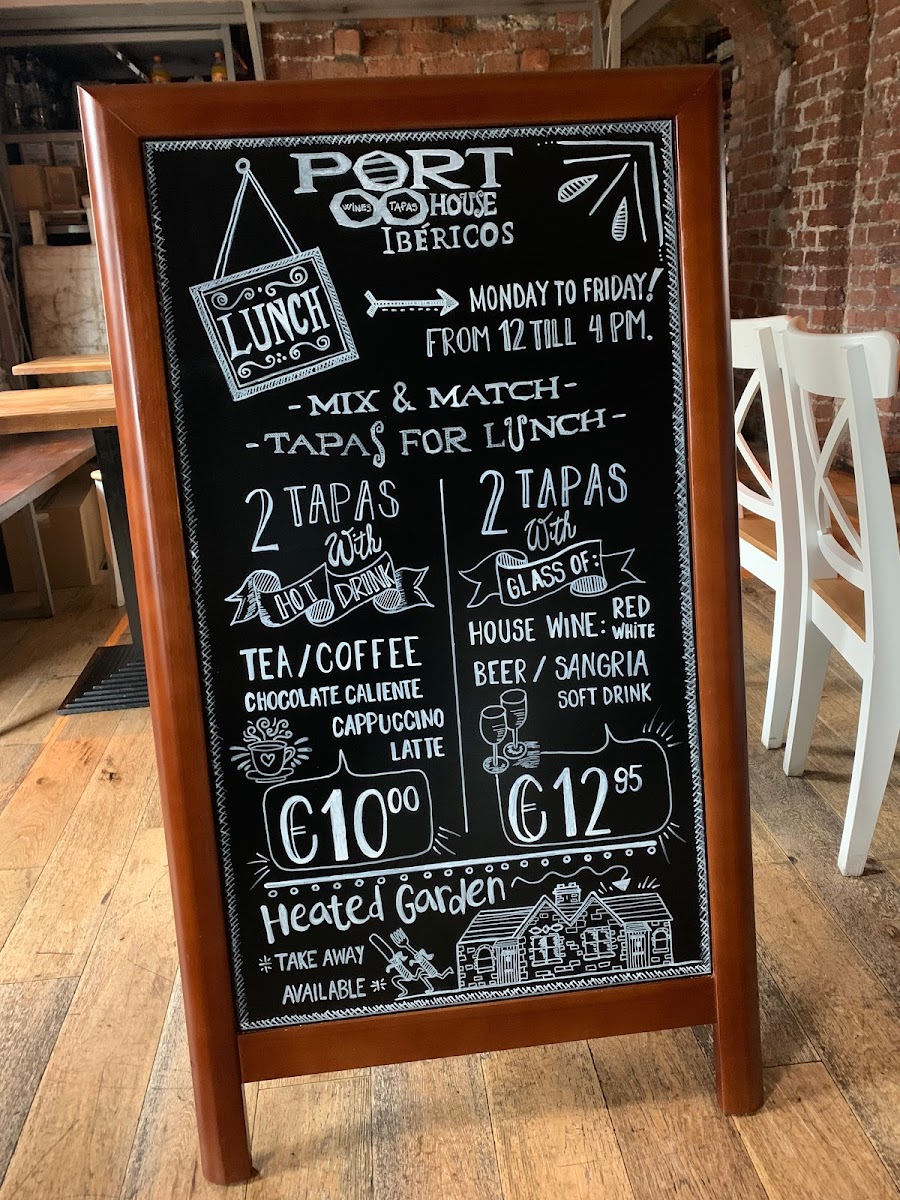 PORT
WINES TAPAS HOUSE
IBÉRICOS
LUNCH
MONDAY TO FRIDAY!
FROM 12 TILL 4 PM.
-MIX & MATCH-
-TAPAS FOR LUNCH-
2 TAPAS
With
HOT DRINK
TEA/COFFEE
CHOCOLATE CALIENTE
CAPPUCCINO
LATTE
€10⁰⁰
2 TAPAS
With
GLASS OF:
HOUSE WINE: RED
WHITE
BEER / SANGRIA
SOFT DRINK
€12⁹⁵
Heated Garden
TAKE AWAY
AVAILABLE